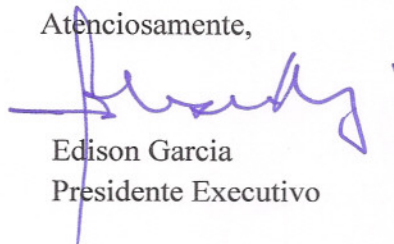 Atenciosamente,
Edison Garcia
Presidente Executivo